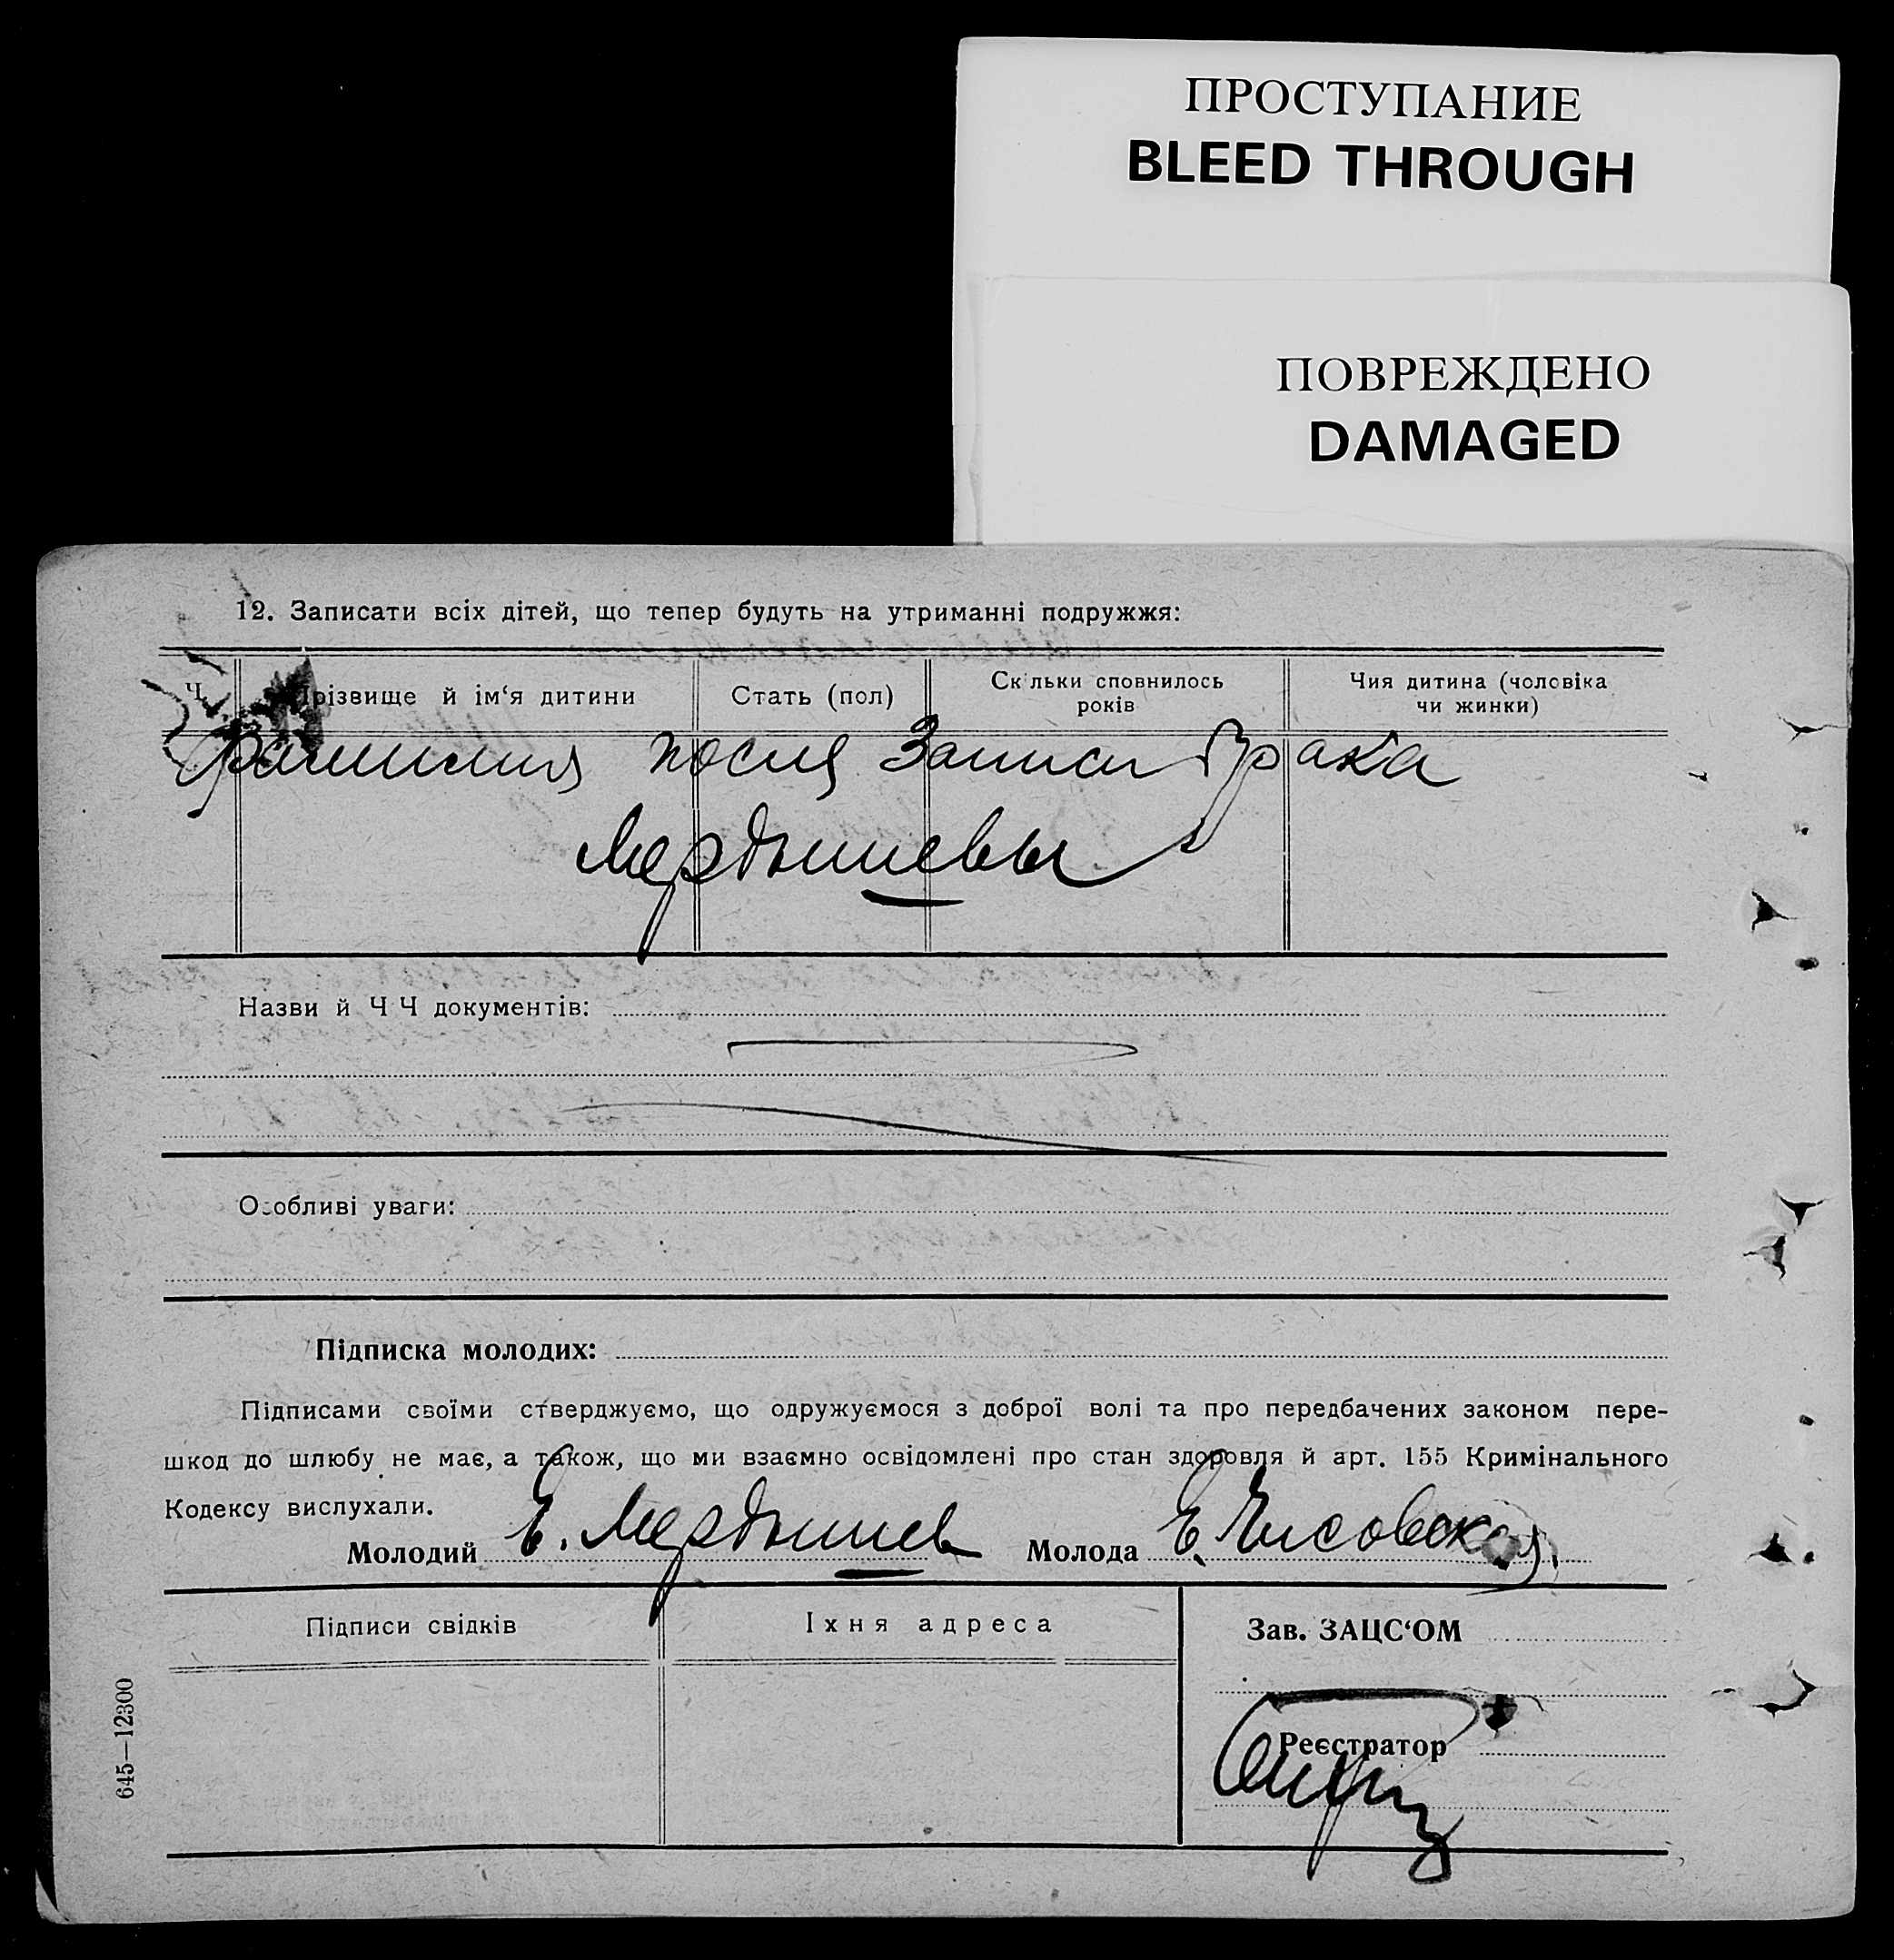 ПРОСТУПАНИЕ
BLEED THROUGH
ПОВРЕЖДЕНО
DAMAGED
12. Записати всіх дітей, що тепер будуть на утриманні подружжя:
Ч. Прізвище й ім‘я дитини Стать (пол) Скільки сповнилось років Чия дитина (чоловіка чи жинки)
Фамилия после записи брака
Мердышевы
Назви й Ч Ч документів:
Особливі уваги:
Підписка молодих:
Підписами своїми стверджуємо, що одружуємося з доброї волі та про передбачених законом пере-
шкод до шлюбу не має, а також, що ми взаємно освідомлені про стан здоровля й арт. 155 Кримінального
Кодексу вислухали.
Молодий Е. Мердышев Молода Е. Чисовская
Підписи свідків Їхня адреса Зав. ЗАЦС‘ОМ
Реєстратор
645—12300